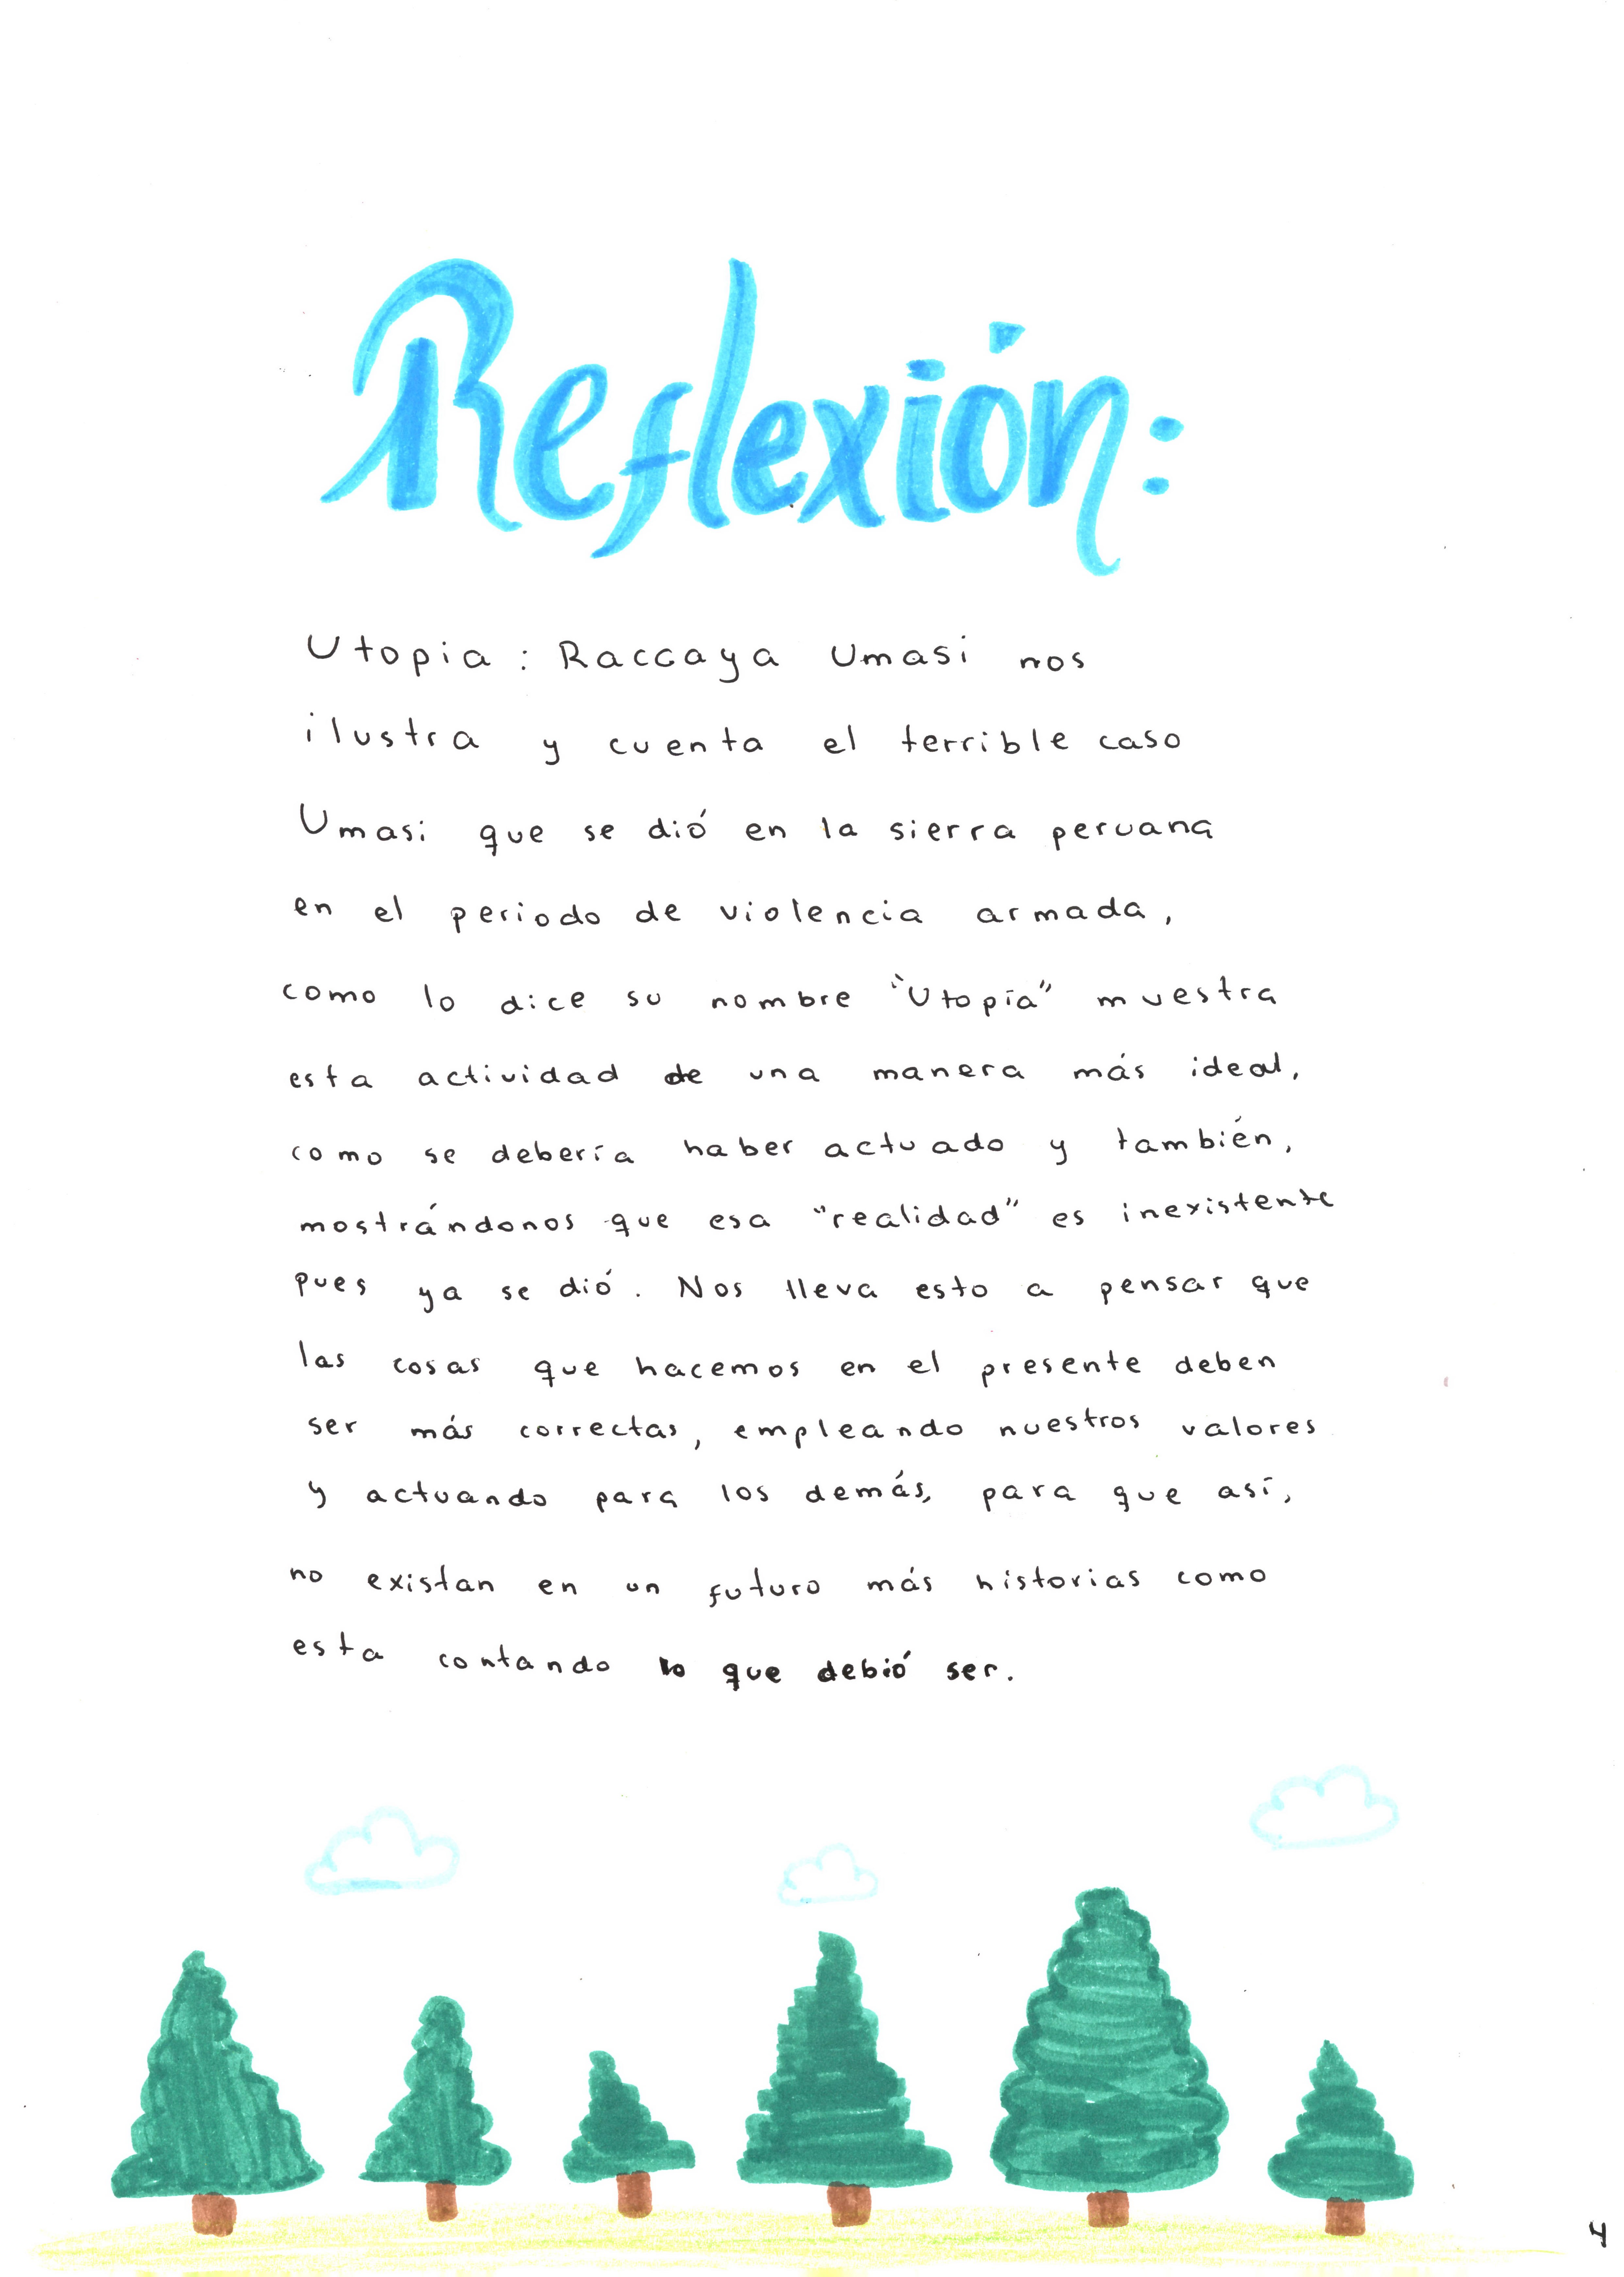 Reflexión:
Utopia : Raccaya Umasi nos
ilustra y cuenta el terrible caso
Umasi que se dió en la sierra peruana
en el periodo de violencia armada,
como lo dice su nombre "Utopía" muestra
esta actividad de una manera más ideal,
como se debería haber actuado y también,
mostrándonos que esa "realidad" es inexistente
pues ya se dió. Nos lleva esto a pensar que
las cosas que hacemos en el presente deben
ser más correctas, empleando nuestros valores
y actuando para los demás, para que así,
no existan en un futuro más historias como
esta contando lo que debió ser.
4